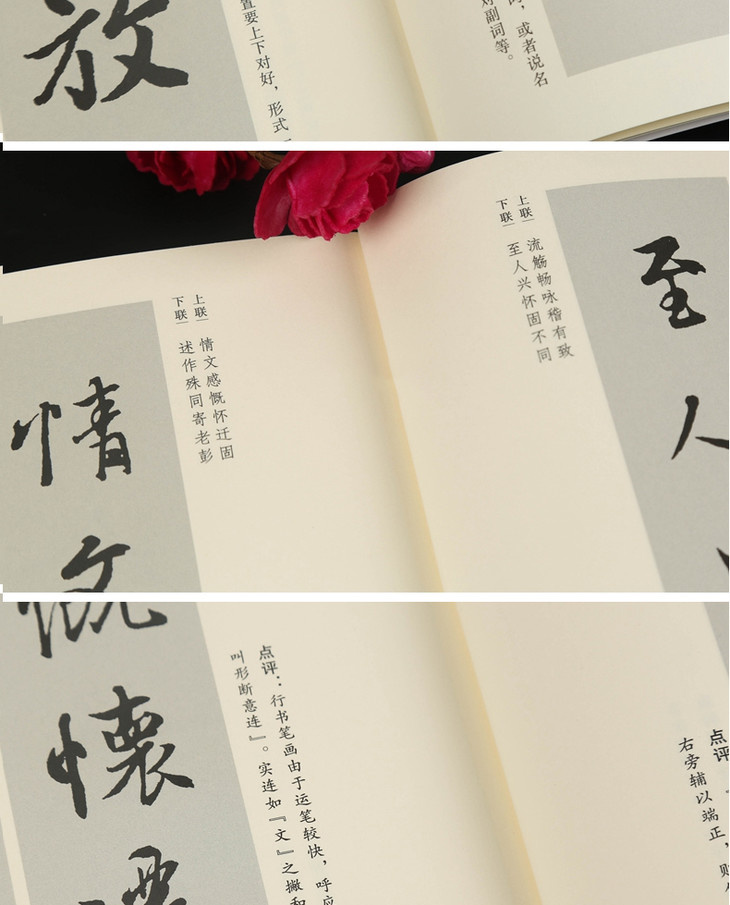 放
置要上下对好，形式一
或者说名
副词等。
情
文
上联 情文感慨怀迁固
下联 述作殊同寄老彭
上联 流觞畅咏稽有致
下联 至人兴怀固不同
至
人
慨
懷
点评：行书笔画由于运笔较快，呼应
叫形断意连』。实连如『文』之撇和
点评
右旁辅以端正，